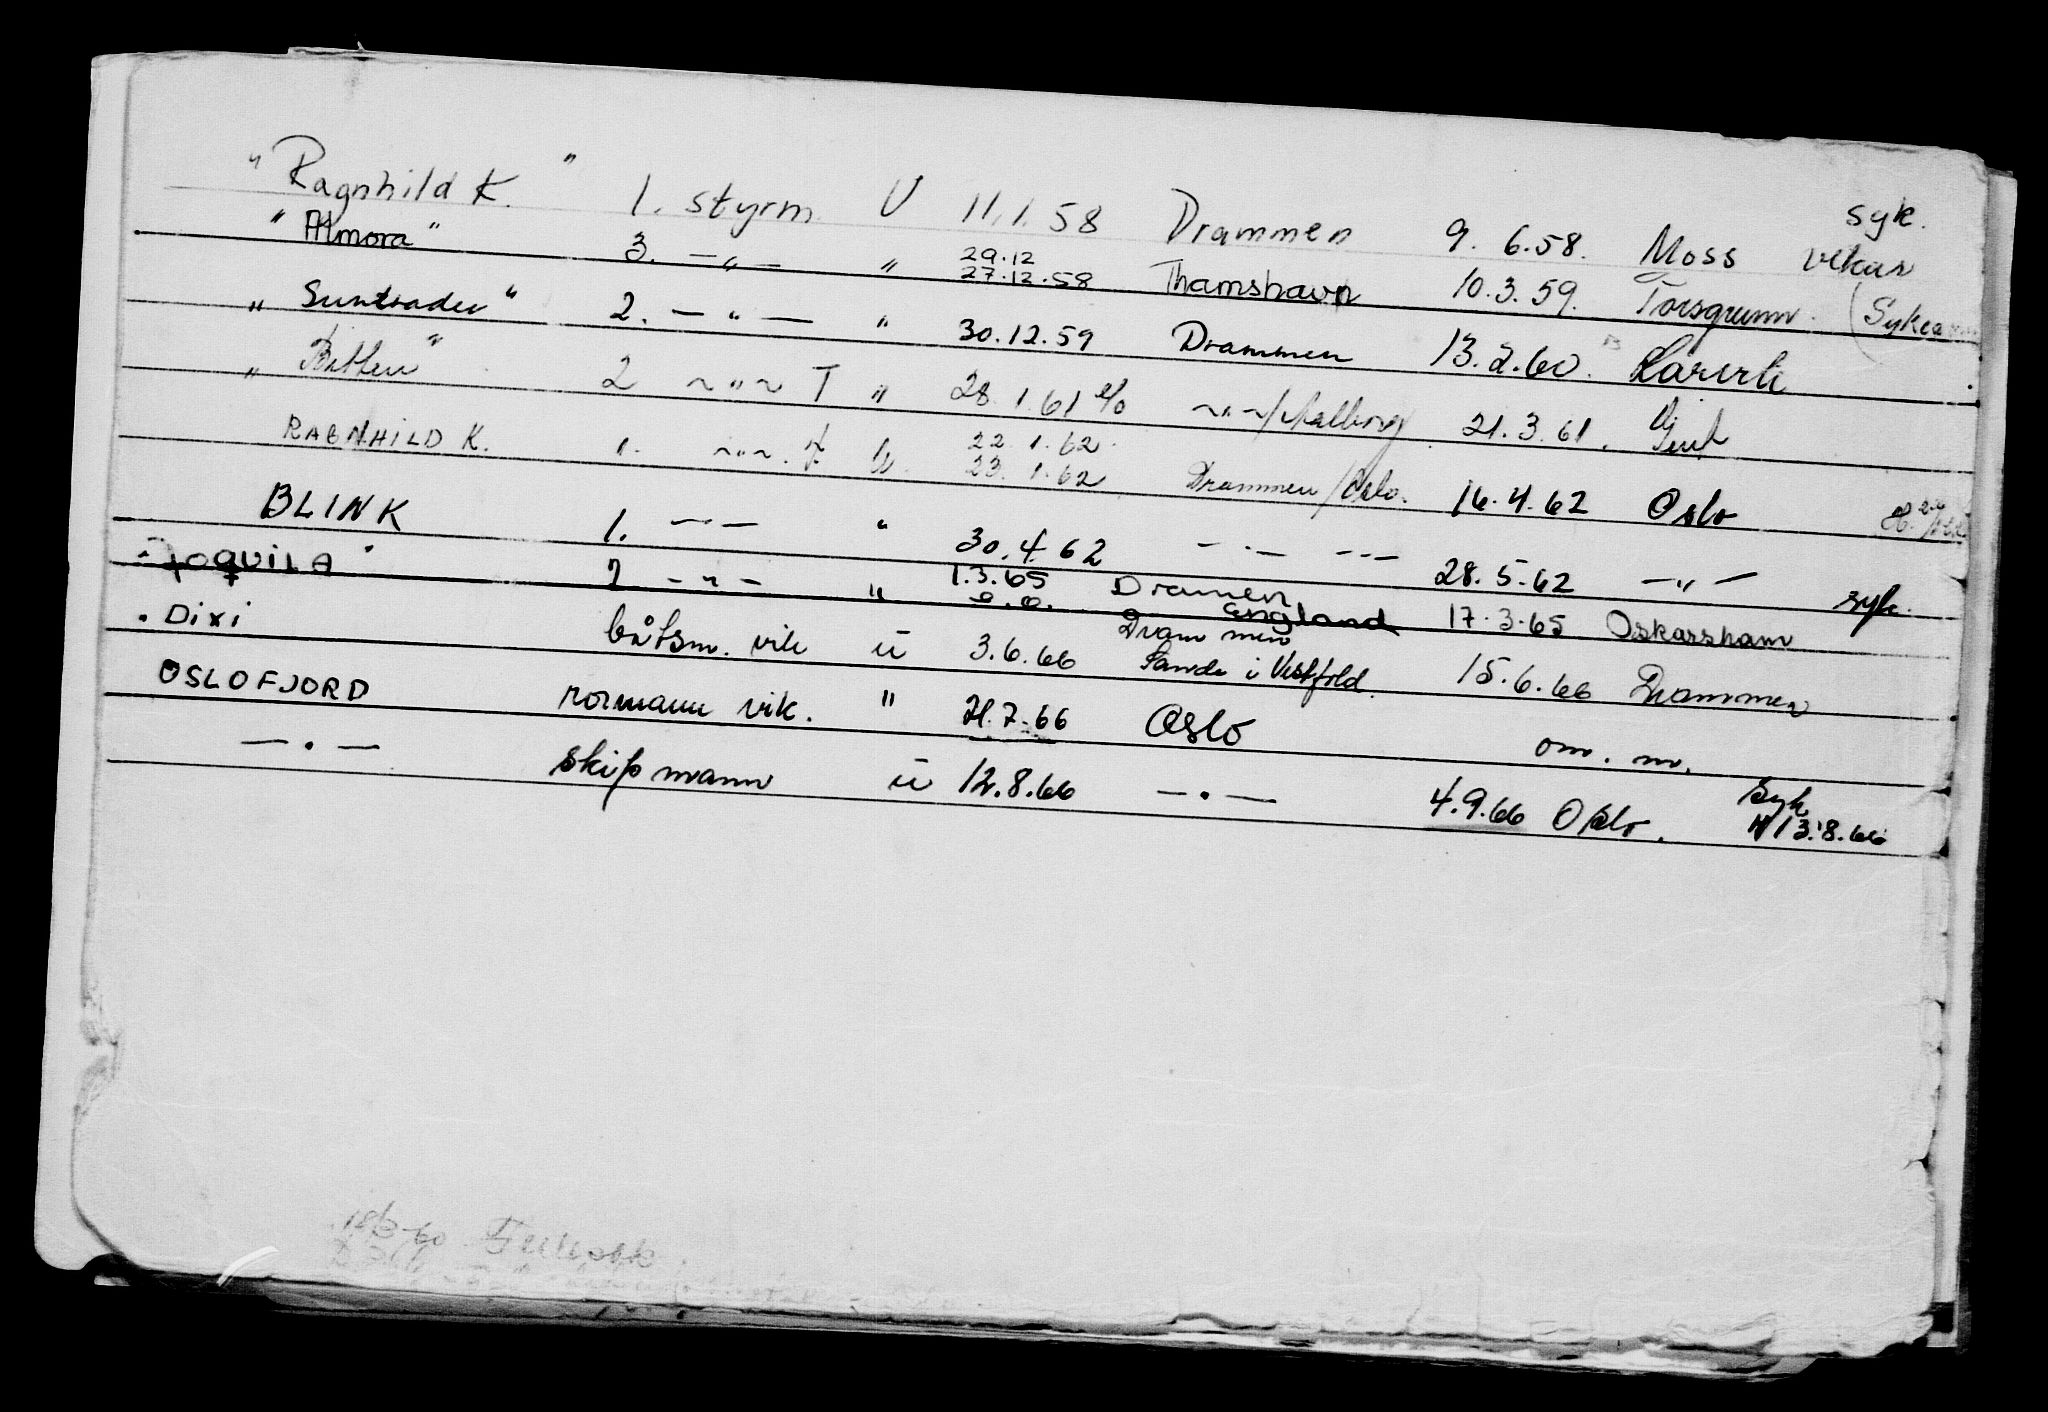 " Ragnhild K. " 1. styrm. U 11.1.58 Drammen 9.6.58. Moss syk. vikar
" Almora " 3. -"- " 29.12 27.12.58 Thamshavn 10.3.59. (Syke
" Suntrader " 2. - " - " 30.12.59 Drammen 13.2.60.
" " 2 ~"~ T " 28.1.61 ~"~/Aalborg 21.3.61.
RAGNHILD K. 1. ~"~. U. 22.1.62 23.1.62 Drammen/Oslo. 16.4.62 Oslo
BLINK 1. -"- " 30.4.62 -"- -"- 28.5.62 -"-
2 -"- " 1.3.65 Dramen England 17.3.65 Oskarsham syk.
. Dixi båtsm. vik u 3.6.66 Drammen Sande i Vestfold. 15.6.66 Drammen
OSLOFJORD rormann vik. " 21.7.66 Oslo om. m.
- . - skipmann u 12.8.66 - . - 4.9.66 Oslo. Syk 13.8.66